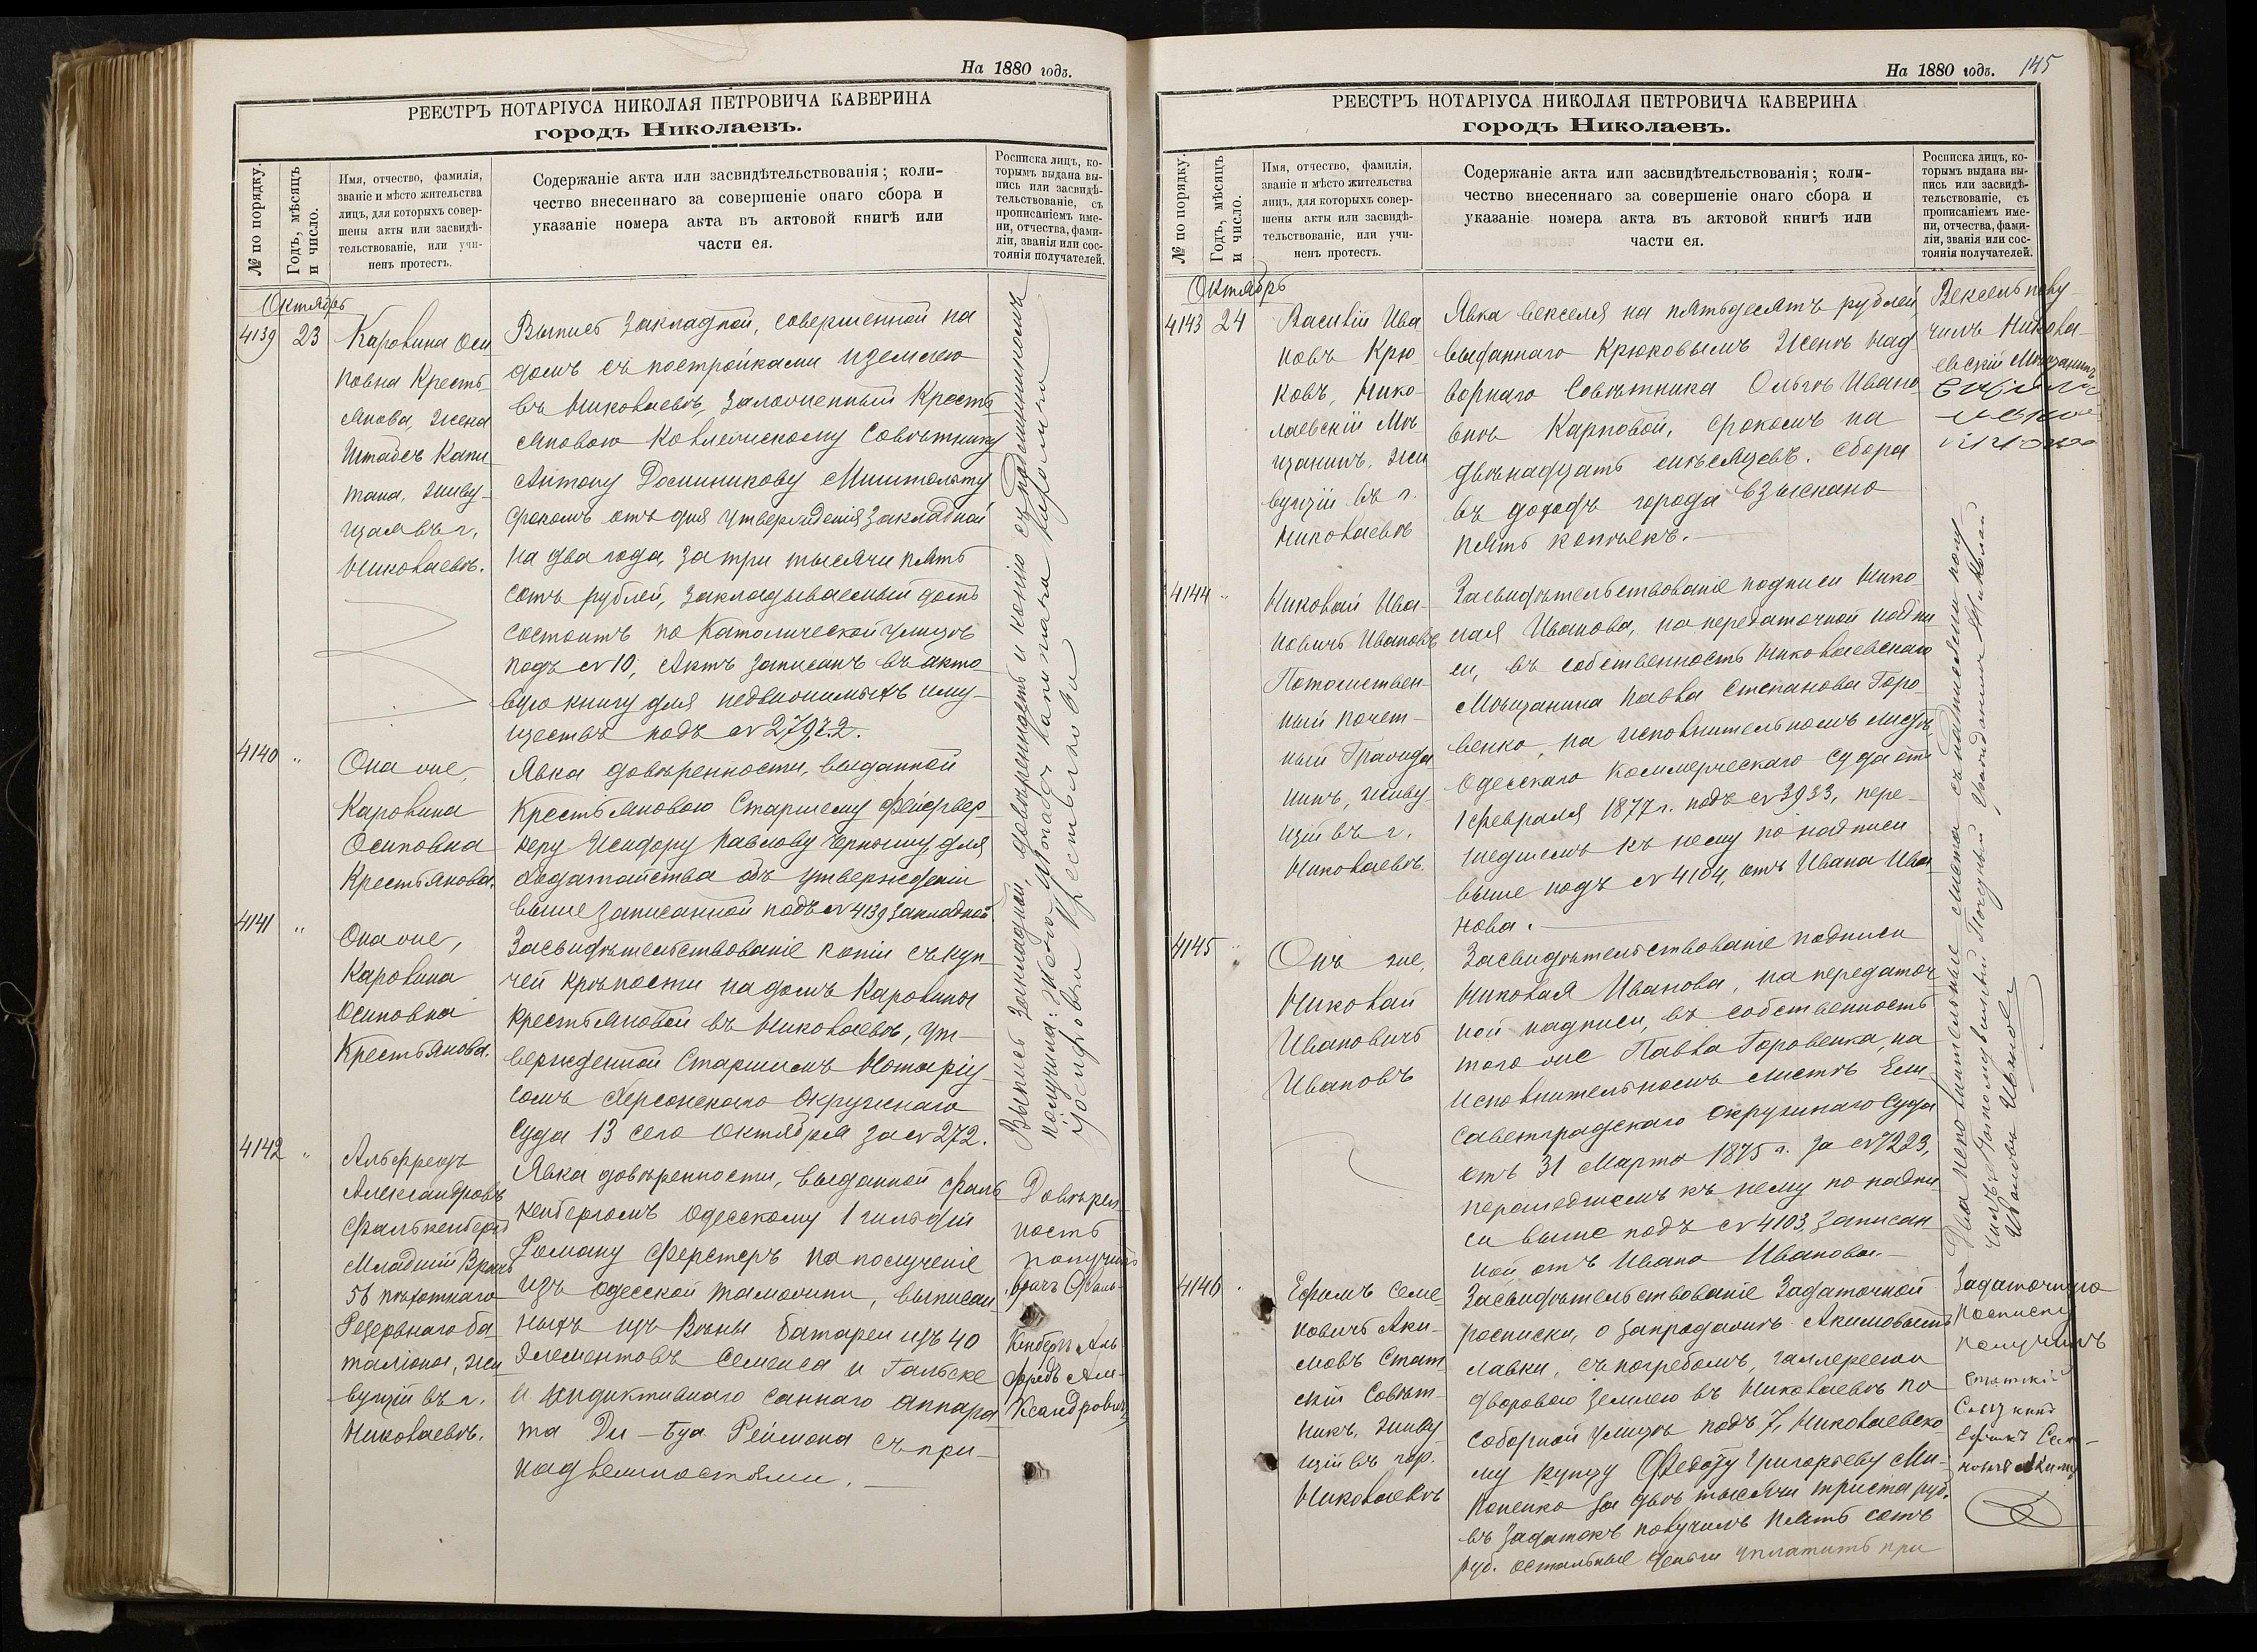 На 1880 годъ.
РЕЕСТРЪ НОТАРІУСА НИКОЛАЯ ПЕТРОВИЧА КАВЕРИНА
городъ Николаевъ.
№ по порядку.
Годъ, мѣсяцъ
и число.
Имя, отчество, фамилія,
званіе и мѣсто жительства
лицъ, для которыхъ совер-
шены акты или засвидѣ-
тельствованіе, или учи-
ненъ протестъ.
Содержаніе акта или засвидѣтельствованія; коли-
чество внесеннаго за совершеніе онаго сбора и
указаніе номера акта въ актовой книгѣ или
части ея.
Росписка лицъ, ко-
торымъ выдана вы-
пись или засвидѣ-
тельствованіе, съ
прописаніемъ име-
ни, отчества, фами-
ліи, званія или сос-
тоянія получателей.
Октябрь
4139
23
Каролина Оси
повна Кресть-
янова, жена
Штабсъ Капи
тана, живу-
щая въ г.
Николаевѣ.
Выпись закладной, совершенной на
домъ съ постройками и землею
въ Николаевѣ, заложенный Кресть
яновою Коллежскому Совѣтнику
Антону Доминикову
срокомъ отъ дня утвержденія закладной
на два года, за три тысячи пять
сотъ рублей, закладываемый домъ
состоитъ по Католической улицѣ
подъ № 10, Актъ записанъ въ акто
вую книгу для недвижимыхъ иму-
ществъ подъ №
4140
"
Она же,
Каролина
Осиповна
Крестьянова.
Явка довѣренности, выданной
Крестьяновою Старшему Фейервер-
керу Исидору Павлову для
ходатайства объ утвержденіи
выше записанной подъ № 4139 закладной.
4141
"
Она же,
Каролина
Осиповна
Крестьянова.
Засвидѣтельствованіе копіи съ куп-
чей крѣпости на домъ Каролины
Крестьяновой въ Николаевѣ, ут-
вержденной Старшимъ Нотаріу-
сомъ Херсонскаго Окружнаго
Суда 13 сего Октября за № 272.
Выпись закладной, довѣренность и копію съ подлинникомъ
получила: жена Штабсъ Капитана Каролина
Іосифовна Крестьянова
4142
"
Альфредъ
Александровъ
Фалькенбергъ
Младшій Врачъ
56 пѣхотнаго
Резервнаго ба-
таліона, жи
вущій въ г.
Николаевѣ.
Явка довѣренности, выданной Фаль
кенбергомъ Одесскому 1 гильдіи
Роману Ферстеръ на полученіе
изъ Одесской таможни, выписан
ныхъ изъ Вѣны батареи изъ 40
элементовъ Сименса и Гальске
и индуктивнаго саннаго аппара
та Дю-Буа Реймона съ при-
надлежностями.
Довѣрен-
ность
получилъ
врачъ Фаль-
кенбергъ Аль
фредъ Але-
ксандровичъ
На 1880 годъ.
145
РЕЕСТРЪ НОТАРІУСА НИКОЛАЯ ПЕТРОВИЧА КАВЕРИНА
городъ Николаевъ.
№ по порядку.
Годъ, мѣсяцъ
и число.
Имя, отчество, фамилія,
званіе и мѣсто жительства
лицъ, для которыхъ совер-
шены акты или засвидѣ-
тельствованіе, или учи-
ненъ протестъ.
Содержаніе акта или засвидѣтельствованія; коли-
чество внесеннаго за совершеніе онаго сбора и
указаніе номера акта въ актовой книгѣ или
части ея.
Росписка лицъ, ко-
торымъ выдана вы-
пись или засвидѣ-
тельствованіе, съ
прописаніемъ име-
ни, отчества, фами-
ліи, званія или сос-
тоянія получателей.
Октябрь
4143
24
Василій Ива
новъ Крю
ковъ, Нико-
лаевскій Мѣ
щанинъ, жи
вущій въ г.
Николаевѣ
Явка векселя на пятьдесятъ рублей,
выданнаго Крюковымъ Женѣ Над
ворнаго Совѣтника Ольгѣ Ивано
внѣ Карповой, срокомъ на
двѣнадцать мѣсяцевъ. Сбора
въ доходъ города взыскано
пять копѣекъ.
Вексель полу-
чилъ Никола-
евскій Мѣщанинъ
4144
"
Николай Ива-
новичъ Ивановъ
Потомствен-
ный почет-
ный Гражда
нинъ, живу-
щій въ г.
Николаевѣ.
Засвидѣтельствованіе подписи Нико
лая Иванова, на передаточной надпи
си, въ собственность Николаевскаго
Мѣщанина Павла Степанова Горо-
венко, на исполнительномъ листѣ
Одесскаго Коммерческаго Суда отъ
1 февраля 1877 г. подъ № 3933, пере-
шедшемъ къ нему по надписи
выше подъ № 4104, отъ Ивана Ива
нова.
4145
"
Онъ же,
Николай
Ивановичъ
Ивановъ
Засвидѣтельствованіе подписи
Николая Иванова, на передаточ
ной надписи, въ собственность
того же Павла Горовенка, на
исполнительномъ листѣ Ели-
саветградскаго Окружнаго Суда
отъ 31 Марта 1875 г. за № 7223,
перешедшемъ къ нему по надпи
си выше подъ № 4103, записан
ной отъ Ивана Иванова.
Два исполнительные листа съ надписями полу
чилъ Потомственный Почетный Гражданинъ Николай
Ивановъ Ивановъ
4146
"
Ефимъ Семе-
новичъ Аки-
мовъ Стат
скій Совѣт-
никъ, живу
щій въ гор.
Николаевѣ
Засвидѣтельствованіе Задаточной
росписки, о запродажѣ Акимовымъ
лавки, съ погребомъ, галлереею и
дворовою землею въ Николаевѣ по
Соборной улицѣ подъ 7, Николаевско
му купцу Федоту Григорьеву Ми-
хоненко за двѣ тысячи триста руб.
въ задатокъ получилъ пять сотъ
руб. остальные деньги уплатить при
Задаточную
росписку
получилъ
Статскій
Совѣтникъ
Ефимъ Семе-
новъ Акимовъ